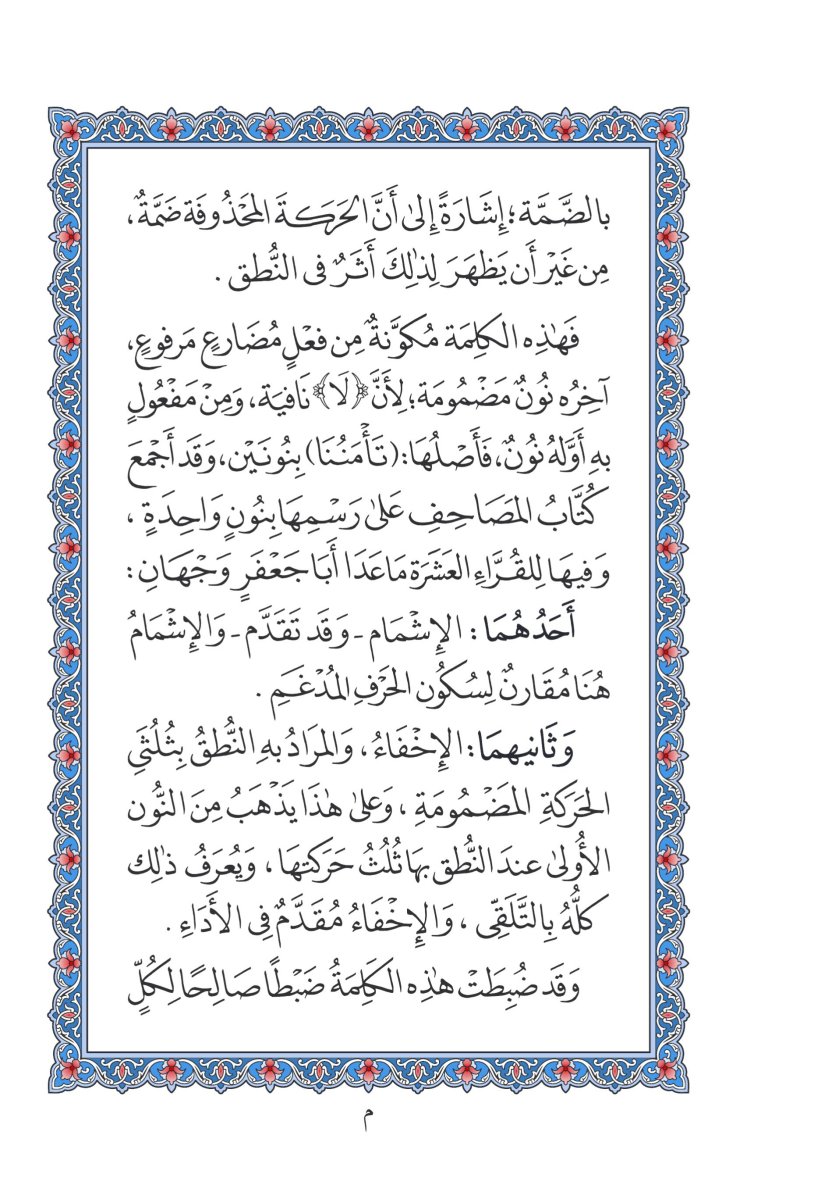 بالضَّمَّة؛ إِشَارَةً إِلىٰ أَنَّ الحَرَكةَ المَحْذُوفَة ضَمَّةٌ،
مِن غَيْرِ أَن يَظهَرَ لِذٰلِكَ أَثَرٌ فى النُّطق .
فَهٰذِه الكلِمَة مُكوَّنةٌ مِن فعْلٍ مُضَارعٍ مَرفوعٍ،
آخِرُه نُونٌ مَضْمُومَة؛ لِأَنَّ ﴿لَا﴾ نَافيَة، وَمِنْ مَفْعُولٍ
بهِ أَوَّلهُ نُونٌ، فَأَصْلُهَا: (تَأْمَنُنَا) بِنُونَيْن، وَقَد أَجْمَعَ
كُتَّابُ المَصَاحِفِ عَلىٰ رَسْمِهَا بِنُونٍ وَاحِدَةٍ ،
وَفيهَا لِلقُرَّاءِ العَشَرَة مَاعَدَا أَبَا جَعْفَرٍ وَجْهَانِ :
أَحَدُهُمَا : الإِشْمَام - وَقَد تَقَدَّم - وَالإِشْمَامُ
هُنَا مُقَارنٌ لِسُكُون الحَرْفِ المُدْغَمِ .
وَثَانيهمَا : الإِخْفَاءُ ، وَالمرَادُ بهِ النُّطقُ بِثُلُثَيِ
الحَرَكَةِ المَضْمُومَةِ ، وَعَلىٰ هٰذَا يَذْهَبُ مِنَ النُّون
الأُولىٰ عندَ النُّطق بهَا ثُلُثُ حَرَكَتهَا ، وَيُعرَفُ ذٰلِكَ
كلُّهُ بِالتَّلَقِّى ، وَالإِخْفَاءُ مُقَدَّمٌ فِى الأَدَاءِ .
وَقَد ضُبِطَتْ هٰذِه الكَلِمَةُ ضَبْطًا صَالِحًا لِكُلٍّ
م